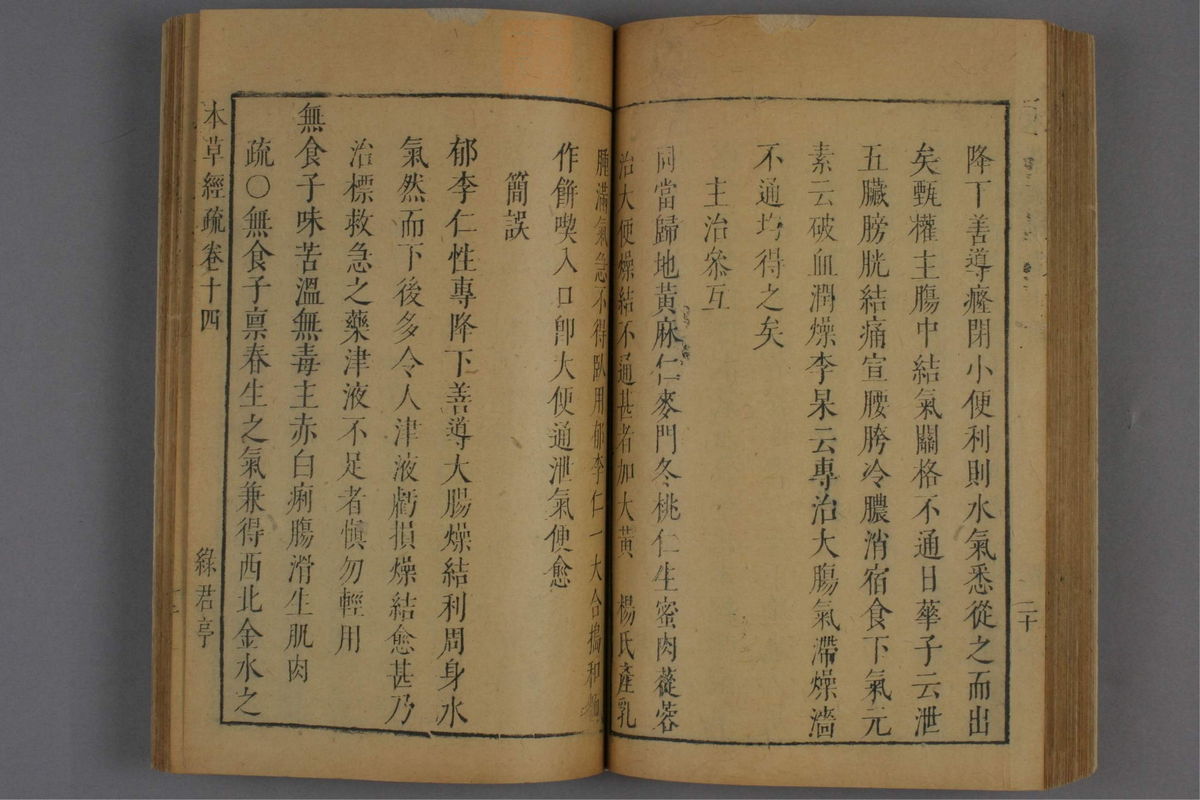 降下善導癃閉小便利則水氣悉從之而出
矣甄權主腸中結氣關格不通日華子云泄
五臟膀胱結痛宣腰胯冷膿消宿食下氣元
素云破血潤燥李杲云專治大腸氣滯燥濇
不通均得之矣
主治叅互
同當歸地黃麻仁麥門冬桃仁生蜜肉蓯蓉
治大便燥結不通甚者加大黃 楊氏產乳
腫滿氣急不得臥用郁李仁一大合搗和麵
作餅喫入口卽大便通泄氣便愈
簡誤
郁李仁性專降下善導大腸燥結利周身水
氣然而下後多令人津液虧損燥結愈甚乃
治標救急之藥津液不足者慎勿輕用
無食子味苦溫無毒主赤白痢腸滑生肌肉
疏〇無食子禀春生之氣兼得西北金水之
本草經疏 卷十四 綠君亭
二十